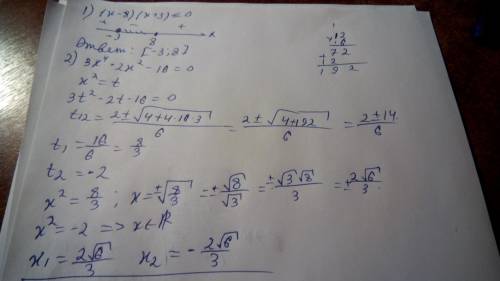 1) (x-8)(x+3) ≤ 0
+ − +
-3 8 x
Ответ: [-3; 8]
2) 3x⁴ - 2x² - 16 = 0
x² = t
3t² - 2t - 16 = 0
t₁₂ = (2 ± √(4+4·16·3))/6 = (2 ± √(4+192))/6 = (2 ± 14)/6
t₁ = 16/6 = 8/3
t₂ = -2
x² = 8/3 ; x = ±√(8/3) = ±√8/√3 = ±√3√8/3 = ±2√6/3
x² = -2 => x ∈ ℝ
x₁ = 2√6/3 x₂ = -2√6/3
1
×12
16
72
+12
192